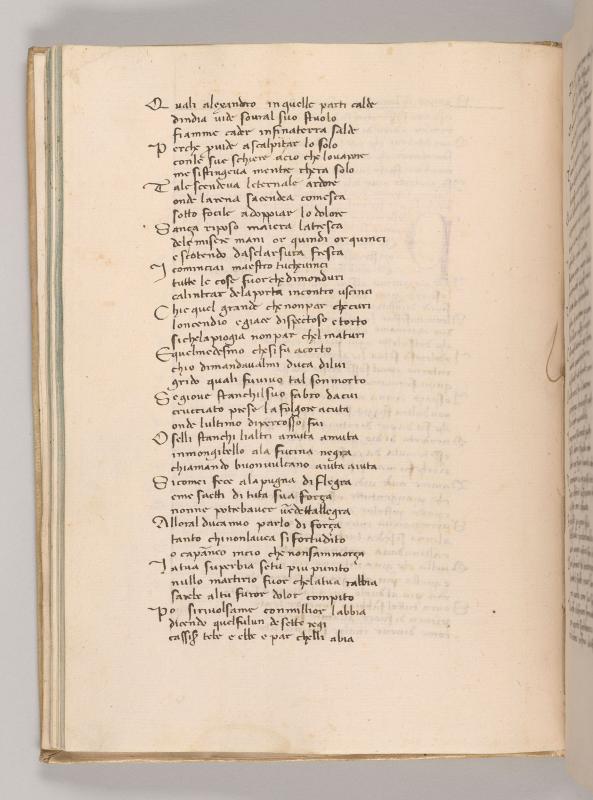 Quali alexandro inquelle parti calde
dindia vide sovral suo stuolo
fiamme cader infinaterra salde
Perche pvide ascalpitar lo solo
conle sue schiere acio chelovapore
me sistingeva mentre chera solo
Tale scendeva leternale ardore
onde larena sacendea comesca
sotto focile adoppiar lo dolore
Sança riposo maiera latresca
dele misere mani or quindi or quinci
escotendo dasclarsura fresca
Icominciai maestro tuchevinci
tutte le cose fuorchedimonduri
calintrar delaporta incontro uscinci
Chie quel grande chenonpar checuri
loncendio egiace dispectoso etorto
sichelapiogia nonpar chel maturi
Equelmedesimo chesifu acorto
chio dimandavalmi duca dilui
grido quali fuvivo tal sonmorto
Segiove stanchilsuo fabro dacui
crucciato prese lafolgore acuta
onde lultimo dipercosso fui
Oselli stanchi lialtri amuta amuta
inmongibello ala fucina negra
chiamando buonvulcano aiuta aiuta
Sicomei fece alapugna di flegra
eme saetti di tuta sua força
nonne potrebaver vedettallegra
Alloral ducamio parlo di força
tanto chinonlavea si fortudito
o capaneo incio che nonsammorça
Latua superbia setu piu punito
nullo martirio fuor chelatua rabbia
sarebe altu furor dolor compito
Po sirivolsame conmillior labbia
dicendo quelfulun de sette regi
cassis tebe e ebbe e par chelli abia